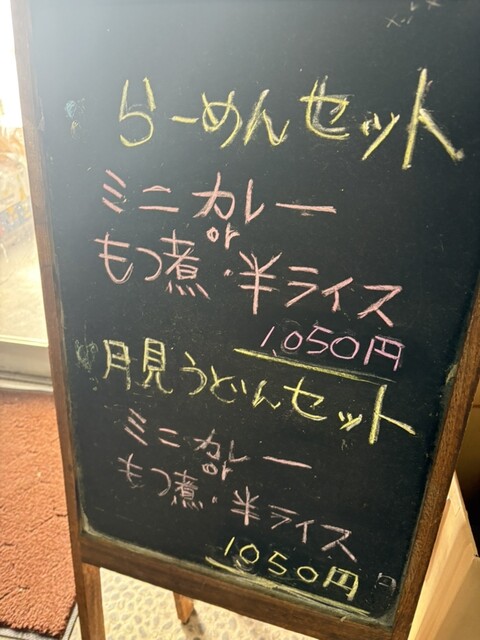 らーめんセット
ミニカレー
or
もつ煮・半ライス
1,050円
月見うどんセット
ミニカレー
or
もつ煮・半ライス
1050円